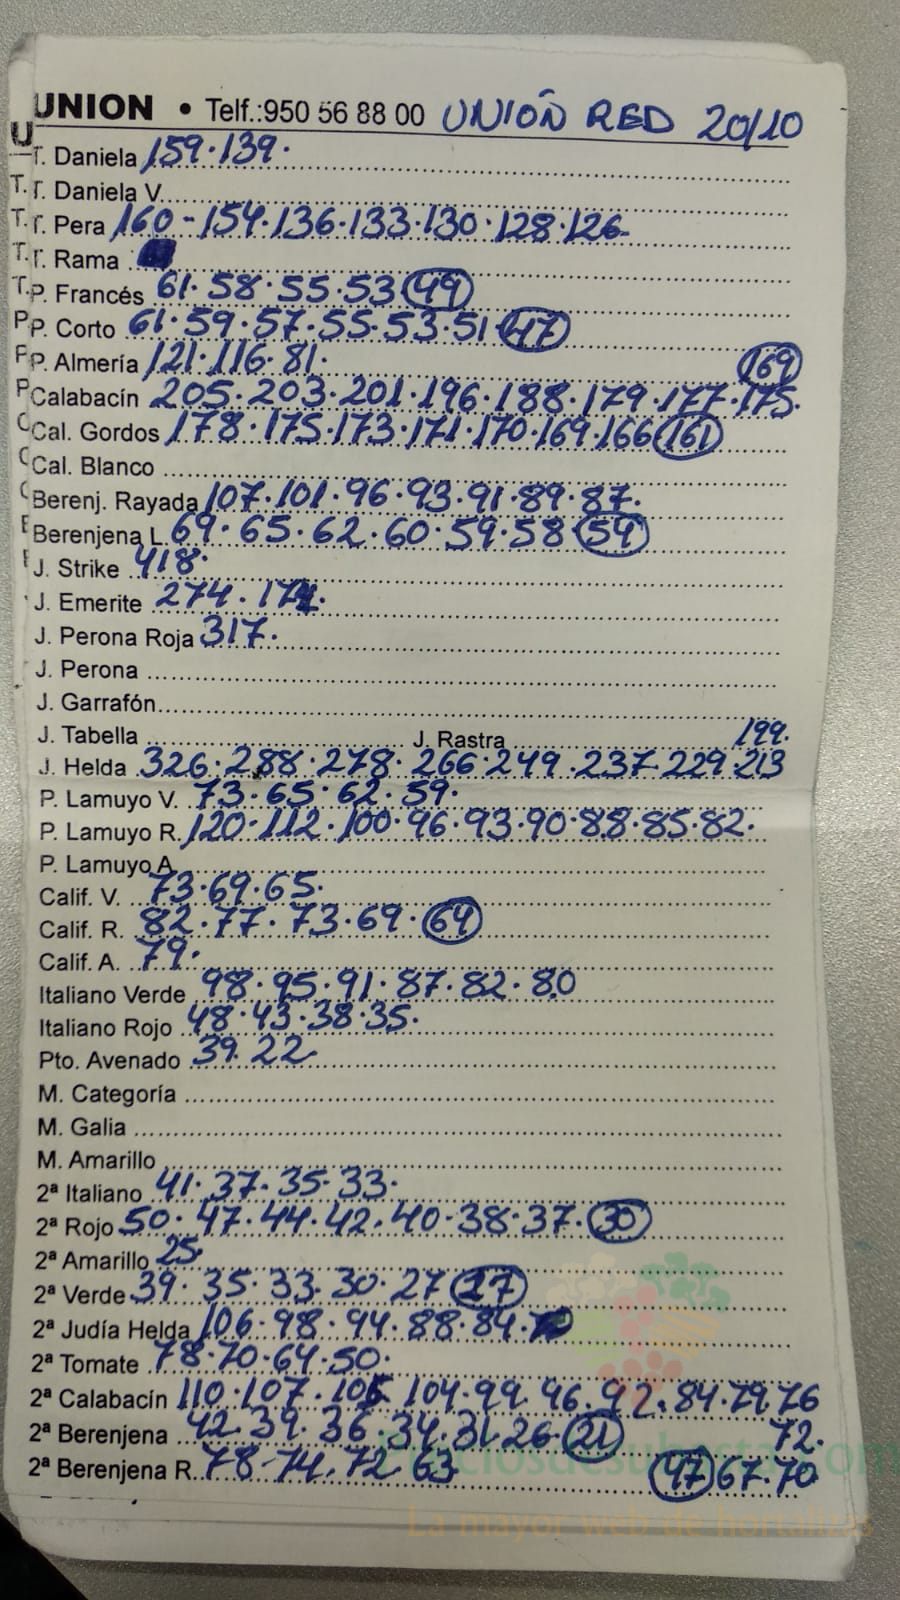 UNION • Telf.:950 56 88 00 UNIÓN RED 20/10
T. Daniela 159.139.
T. Daniela V.
T. Pera 160-154.136.133.130.128.126
T. Rama
P. Francés 61.58.55.53 49
P. Corto 61.59.57.55.53.51 47
P. Almería 121.116.81. 169
Calabacín 205.203.201.196.188.179.177.175.
Cal. Gordos 178.175.173.171.170.169.166 161
Cal. Blanco
Berenj. Rayada 107.101.96.93.91.89.87.
Berenjena L. 69.65.62.60.59.58 54
J. Strike 418.
J. Emerite 274.
J. Perona Roja 317.
J. Perona
J. Garrafón
J. Tabella J. Rastra 199.
J. Helda 326.288.278.266.249.237.229.213
P. Lamuyo V. 73.65.62.59.
P. Lamuyo R. 120.112.100.96.93.90.88.85.82.
P. Lamuyo A.
Calif. V. 73.69.65.
Calif. R. 82.77.73.69. 64
Calif. A. 79.
Italiano Verde 98.95.91.87.82.80
Italiano Rojo 48.43.38.35.
Pto. Avenado 39.22
M. Categoría
M. Galia
M. Amarillo
2ª Italiano 41.37.35.33.
2ª Rojo 50.47.44.42.40.38.37. 30
2ª Amarillo 25.
2ª Verde 39.35.33.30.27 17
2ª Judía Helda 106.98.94.88.84.
2ª Tomate 78.70.64.50.
2ª Calabacín 110.107.105 104.99.96.92.84.79.76
2ª Berenjena 42.39.36.34.31.26. 21 72.
2ª Berenjena R. 78.74.72.63 47 67.70
Preciosdesubasta.com
La mayor web de hortalizas